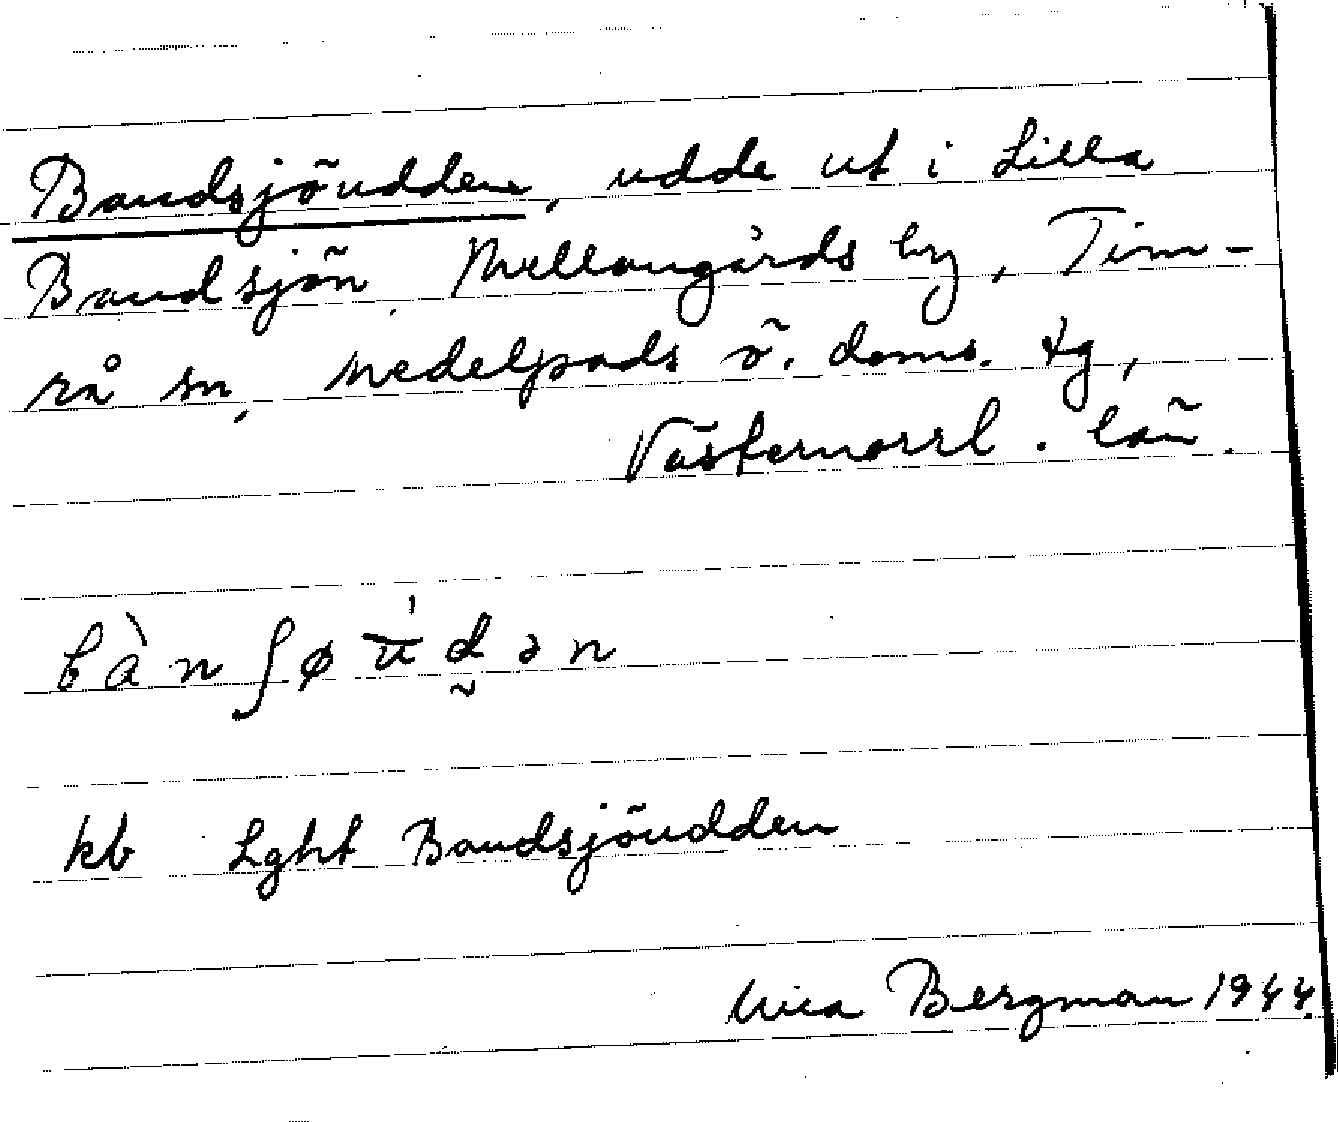 Bandsjöudden, udde ut i Lilla
Bandsjön, Mellangårds by, Tim-
rå sn, Medelpads ö. doms. tg,
Västernorrl. län.
bànʃøūdən
kb Lght Bandsjöudden
Bergman 1944.